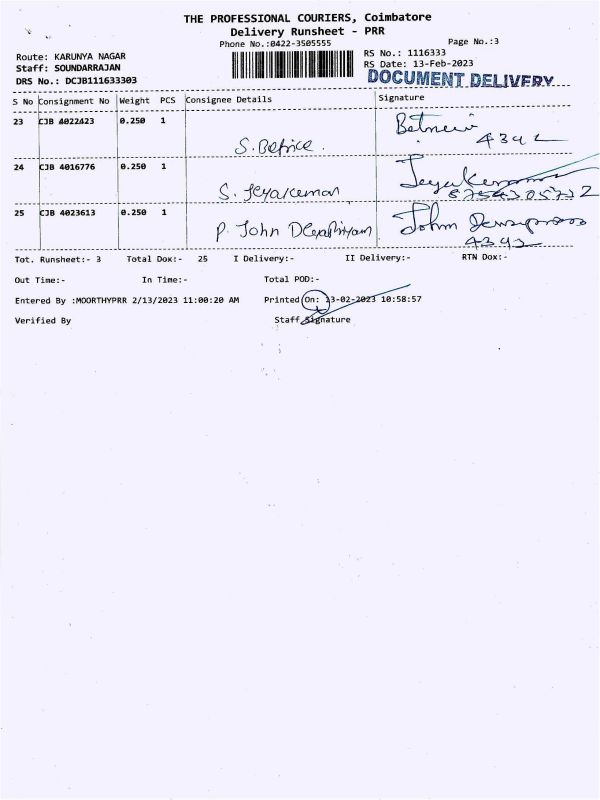 THE PROFESSIONAL COURIERS, Coimbatore
Delivery Runsheet - PRR
Phone No.:0422-3505555
Page No.:3
Route: KARUNYA NAGAR
RS No.: 1116333
Staff: SOUNDARRAJAN
RS Date: 13-Feb-2023
DRS No.: DCJB111633303
DOCUMENT DELIVERY
S No Consignment No Weight PCS Consignee Details Signature
23 CJB 4022423 0.250 1
S. Betrice.
4392
24 CJB 4016776 0.250 1
S. Jeyakumar
25 CJB 4023613 0.250 1
P. John
John
4392
Tot. Runsheet:- 3 Total Dox:- 25 I Delivery:- II Delivery:- RTN Dox:-
Out Time:- In Time:- Total POD:-
Entered By :MOORTHYPRR 2/13/2023 11:00:20 AM Printed On: 13-02-2023 10:58:57
Verified By Staff Signature